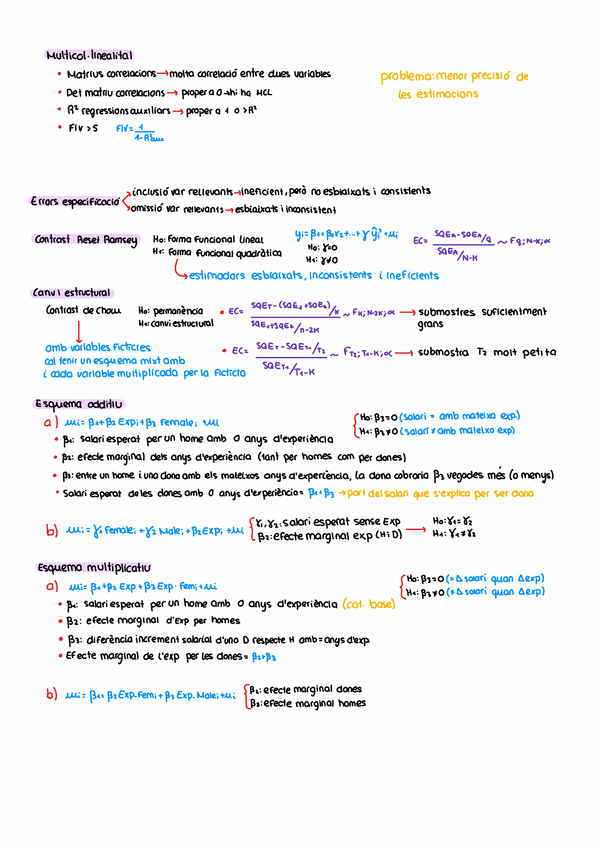 Multicol·linealitat
• Matrius correlacions → molta correlació entre dues variables
• Det matriu correlacions → proper a 0 → hi ha MCL
• R² regressions auxiliars → proper a 1 o > R²
• FIV > 5 FIV = 1 / 1-R²aux
problema: menor precisió de
les estimacions
Errors especificació
inclusió var rellevants → ineficient, però no esbiaixats i consistents
omissió var rellevants → esbiaixats i inconsistent
Contrast Reset Ramsey
H₀: Forma funcional lineal
H₁: Forma funcional quadràtica
yi = β1 + β2x2 + ... + γ ŷi² + ui
H₀: γ=0
H₁: γ≠0
EC = SQER - SQEA / q / SQEA / N-K ~ Fq; N-K; α
→ estimadors esbiaixats, inconsistents i ineficients
Canvi estructural
Contrast de Chow
H₀: permanència
H₁: canvi estructural
• EC = SQET - (SQE1 + SQE2) / K / SQE1 + SQE2 / n-2K ~ FK; N-2K; α → submostres suficientment
grans
amb variables fictícies
cal tenir un esquema mixt amb
i cada variable multiplicada per la fictícia
• EC = SQET - SQET1 / T2 / SQET1 / T1-K ~ FT2; T1-K; α → submostra T2 molt petita
Esquema additiu
a) ui = β1 + β2 Expi + β3 Femalei + ui
H₀: β3=0 (salari = amb mateixa exp.)
H₁: β3≠0 (salari ≠ amb mateixa exp)
• β1: salari esperat per un home amb 0 anys d'experiència
• β2: efecte marginal dels anys d'experiència (tant per homes com per dones)
• β3: entre un home i una dona amb els mateixos anys d'experiència, la dona cobraria β3 vegades més (o menys)
• Salari esperat de les dones amb 0 anys d'experiència = β1+β3 → part del salari que s'explica per ser dona
b) ui = γ1 Femalei + γ2 Malei + β2 Expi + ui
γ1, γ2: salari esperat sense Exp
β2: efecte marginal exp (H i D)
→ H₀: γ1=γ2
H₁: γ1≠γ2
Esquema multiplicatiu
a) ui = β1 + β2 Exp + β3 Exp · Femi + ui
H₀: β3=0 (= Δ salari quan Δexp)
H₁: β3≠0 (≠ Δ salari quan Δexp)
• β1: salari esperat per un home amb 0 anys d'experiència (cat. base)
• β2: efecte marginal d'Exp per homes
• β3: diferència increment salarial d'una D respecte H amb = anys d'exp.
• Efecte marginal de l'exp per les dones = β2+β3
b) ui = β1 + β2 Exp·Femi + β3 Exp·Malei + ui
β2: efecte marginal dones
β3: efecte marginal homes